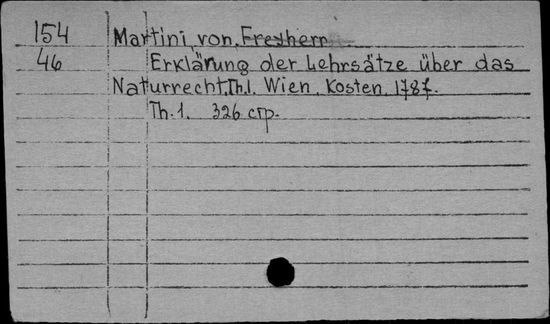 154 Martini, von. Freyherr
46 Erklärung der Lehrsätze über das
Naturrecht.Th.1. Wien. Kosten. 1787.
Th.1. 326 стр.